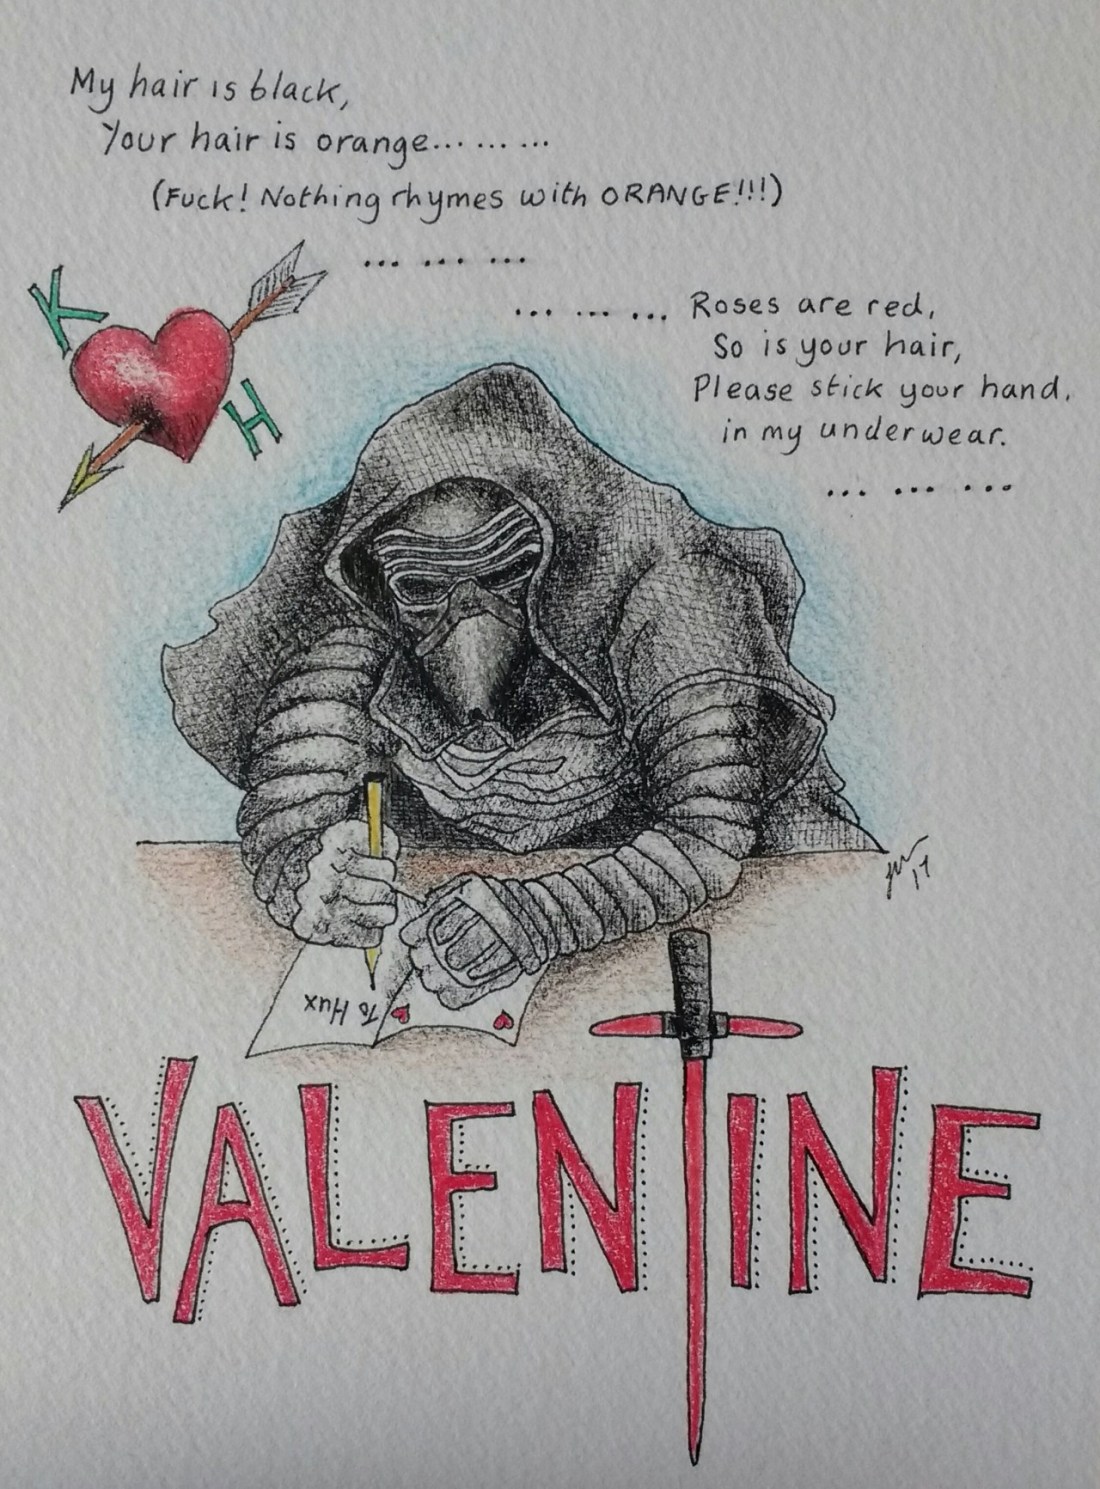 My hair is black,
Your hair is orange... ... ...
(Fuck! Nothing rhymes with ORANGE!!!)
... ... ...
... ... ... Roses are red,
So is your hair,
Please stick your hand,
in my underwear.
... ... ...
K
H
To Hux
VALENTINE
17